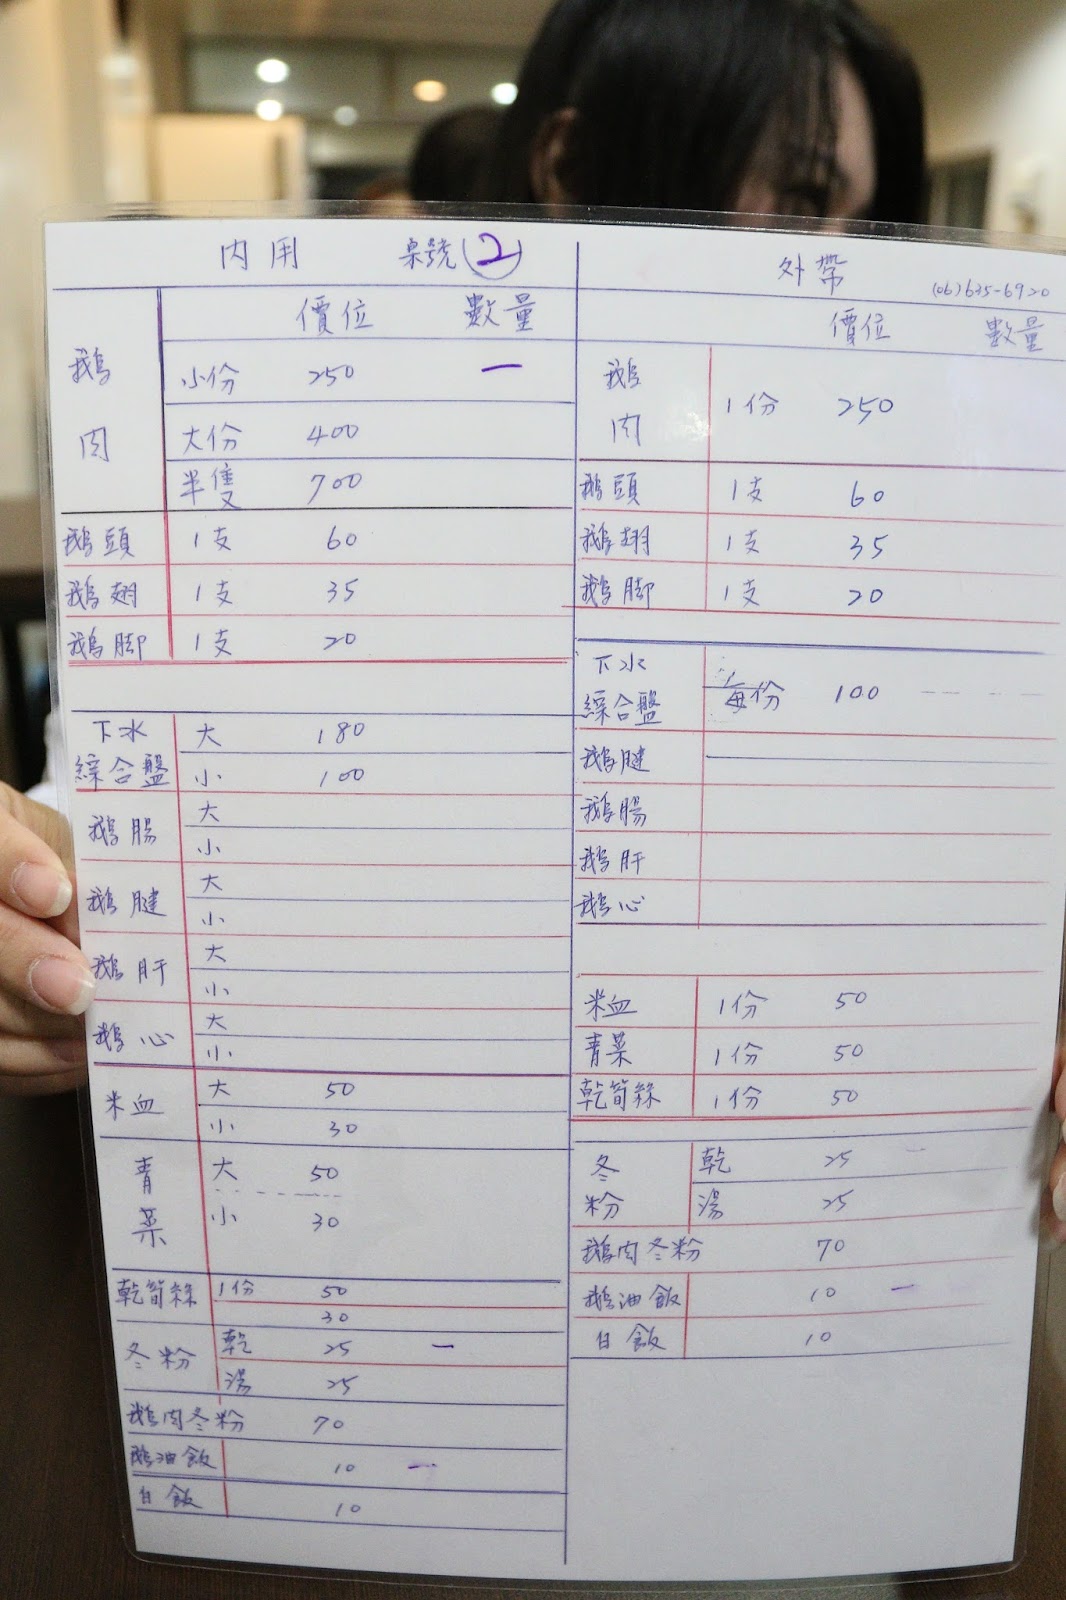 內用 桌號 2
價位 數量
鵝肉 小份 250 一
大份 400
半隻 700
鵝頭 1支 60
鵝翅 1支 35
鵝脚 1支 20
下水綜合盤 大 180
小 100
鵝腸 大
小
鵝腱 大
小
鵝肝 大
小
鵝心 大
小
米血 大 50
小 30
青菜 大 50
小 30
乾筍絲 1份 50
30
冬粉 乾 25 一
湯 25
鵝肉冬粉 70
鵝油飯 10 一
白飯 10
外帶 (06)635-6920
價位 數量
鵝肉 1份 250
鵝頭 1支 60
鵝翅 1支 35
鵝脚 1支 20
下水綜合盤 每份 100
鵝腱
鵝腸
鵝肝
鵝心
米血 1份 50
青菜 1份 50
乾筍絲 1份 50
冬粉 乾 25
湯 25
鵝肉冬粉 70
鵝油飯 10 一
白飯 10